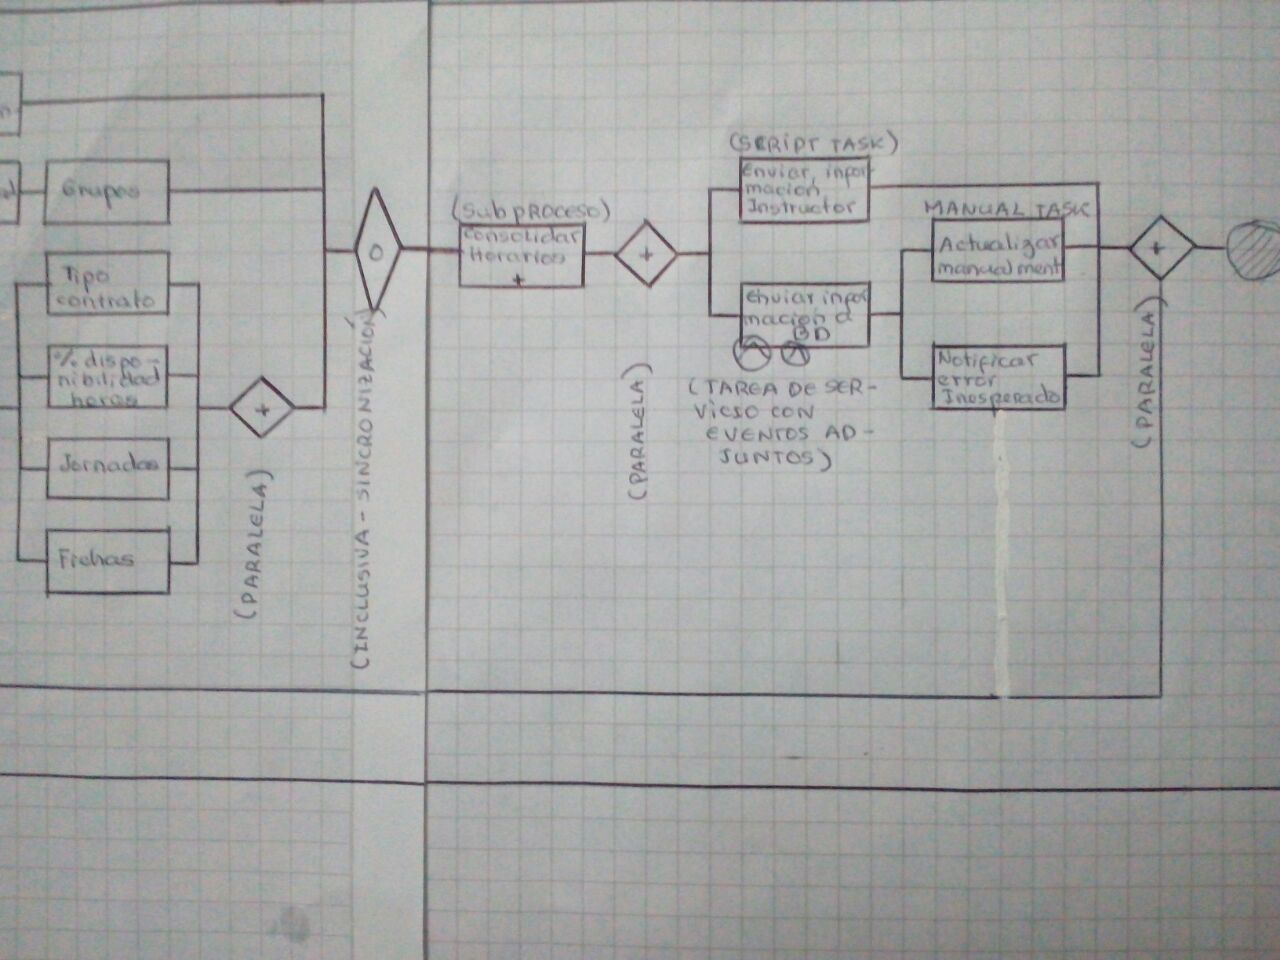 Grupos
Tipo
contrato
% dispo-
nibilidad
horas
Jornadas
Fichas
+
(PARALELA)
O
(INCLUSIVA - SINCRONIZACIÓN)
(SubpROCESO)
Consolidar
Horarios
+
+
(PARALELA)
(SCRIPT TASK)
Enviar infor-
macion
Instructor
Enviar infor
macion a
BD
(TAREA DE SER-
VICIO CON
EVENTOS AD-
JUNTOS)
MANUAL TASK
Actualizar
manualment
Notificar
error
Inesperado
+
(PARALELA)